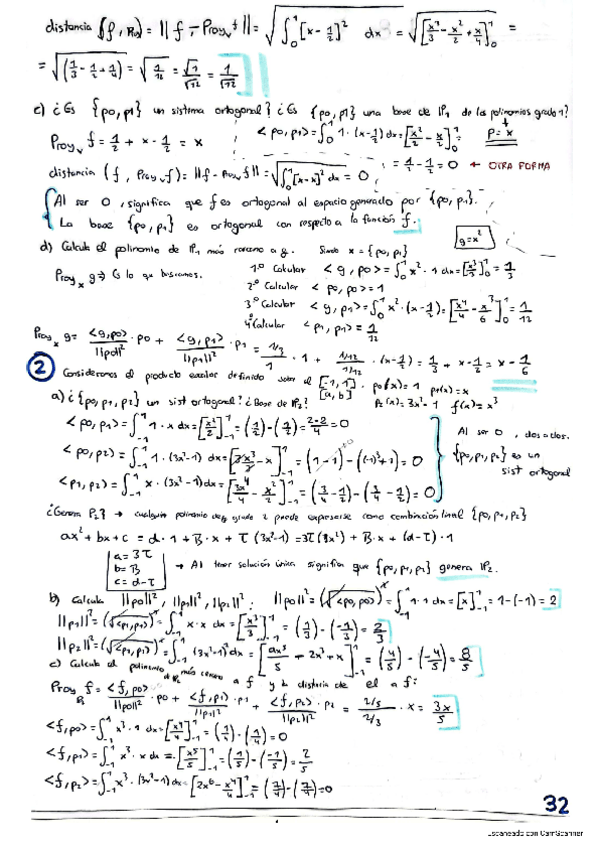 distancia (f, P₍₀₎) = || f - Proy_v f || = √(∫₀¹ [x - 1/2]² dx) = √([x³/3 - x²/2 + x/4]₀¹) =
= √(1/3 - 1/2 + 1/4) = √(1/12) = √1/√12 = 1/√12
c) ¿Es {p0, p1} un sistema ortogonal? ¿Es {p0, p1} una base de P₁ de los polinomios grado 1?
Proy_v f = 1/2 + x - 1/2 = x
<p0, p1> = ∫₀¹ 1 · (x - 1/2) dx = [x²/2 - x/2]₀¹ =
P = x
= 1/2 - 1/2 = 0 ← OTRA FORMA
distancia (f, Proy_v f) = || f - Proy_v f || = √(∫₀¹ [x - x]² dx) = 0
Al ser 0, significa que f es ortogonal al espacio generado por {p0, p1}.
La base {p0, p1} es ortogonal con respecto a la función f.
g = x²
d) Calcula el polinomio de P₁ más cercano a g. Siendo x = {p0, p1}
Proy_x g → Es lo que buscamos.
1º Calcular <g, p0> = ∫₀¹ x² · 1 dx = [x³/3]₀¹ = 1/3
2º Calcular <p0, p0> = 1
3º Calcular <g, p1> = ∫₀¹ x² · (x - 1/2) = [x⁴/4 - x³/6]₀¹ = 1/12
4º Calcular <p1, p1> = 1/12
Proy_x g = <g, p0>/||p0||² · p0 + <g, p1>/||p1||² · p1 = (1/3)/1 · 1 + (1/12)/(1/12) · (x - 1/2) = 1/3 + x - 1/2 = x - 1/6
2 Consideramos el producto escalar definido sobre el [-1, 1] · p0(x) = 1 p1(x) = x
[a, b] p2(x) = 3x² - 1 f(x) = x³
a) ¿{p0, p1, p2} un sist ortogonal? ¿Base de P₂?
<p0, p1> = ∫₋₁¹ 1 · x dx = [x²/2]₋₁¹ = (1/2) - (1/2) = (2-2)/4 = 0
<p0, p2> = ∫₋₁¹ 1 · (3x² - 1) dx = [3x³/3 - x]₋₁¹ = (1 - 1) - ((-1)³ + 1) = 0
<p1, p2> = ∫₋₁¹ x · (3x² - 1) dx = [3x⁴/4 - x²/2]₋₁¹ = (3/4 - 1/2) - (3/4 - 1/2) = 0
Al ser 0, dos a dos.
{p0, p1, p2} es un
sist ortogonal
¿Genera P₂? → cualquier polinomio de grado 2 puede expresarse como combinación lineal {p0, p1, p2}
ax² + bx + c = α · 1 + B · x + τ (3x² - 1) = 3τ(x²) + B · x + (α - τ) · 1
a = 3τ
b = B
c = α - τ
→ Al tener solución única significa que {p0, p1, p2} genera P₂.
b) Calcula ||p0||², ||p1||², ||p2||². ||p0||² = (√<p0, p0>)² = ∫₋₁¹ 1 · 1 dx = [x]₋₁¹ = 1 - (-1) = 2
||p1||² = (√<p1, p1>)² = ∫₋₁¹ x · x dx = [x³/3]₋₁¹ = (1/3) - (-1/3) = 2/3
||p2||² = (√<p2, p2>)² = ∫₋₁¹ (3x² - 1)² dx = [9x⁵/5 - 2x³ + x]₋₁¹ = (4/5) - (-4/5) = 8/5
c) Calcula el polinomio de P₂ más cercano a f y la distancia de el a f:
Proy_P₂ f = <f, p0>/||p0||² · p0 + <f, p1>/||p1||² · p1 + <f, p2>/||p2||² · p2 = (2/5)/(2/3) · x = 3x/5
<f, p0> = ∫₋₁¹ x³ · 1 dx = [x⁴/4]₋₁¹ = (1/4) - (1/4) = 0
<f, p1> = ∫₋₁¹ x³ · x dx = [x⁵/5]₋₁¹ = (1/5) - (-1/5) = 2/5
<f, p2> = ∫₋₁¹ x³ · (3x² - 1) dx = [2x⁶ - x⁴/4]₋₁¹ = (7/4) - (7/4) = 0
32
Escaneado con CamScanner